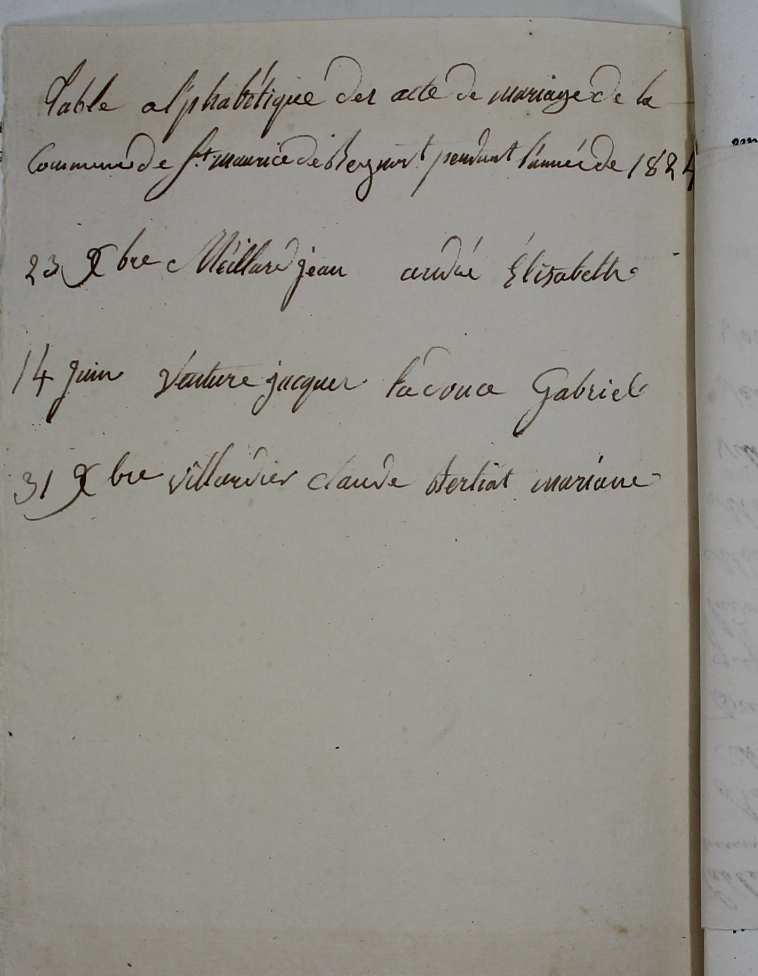 Table alphabétique des acte de mariage de la
Commune de St maurice de pendant l'année de 1824
23 Xbre Méillard jean andré Élisabeth
14 juin Venture jacques Gabriel
31 Xbre villardier claude mariane